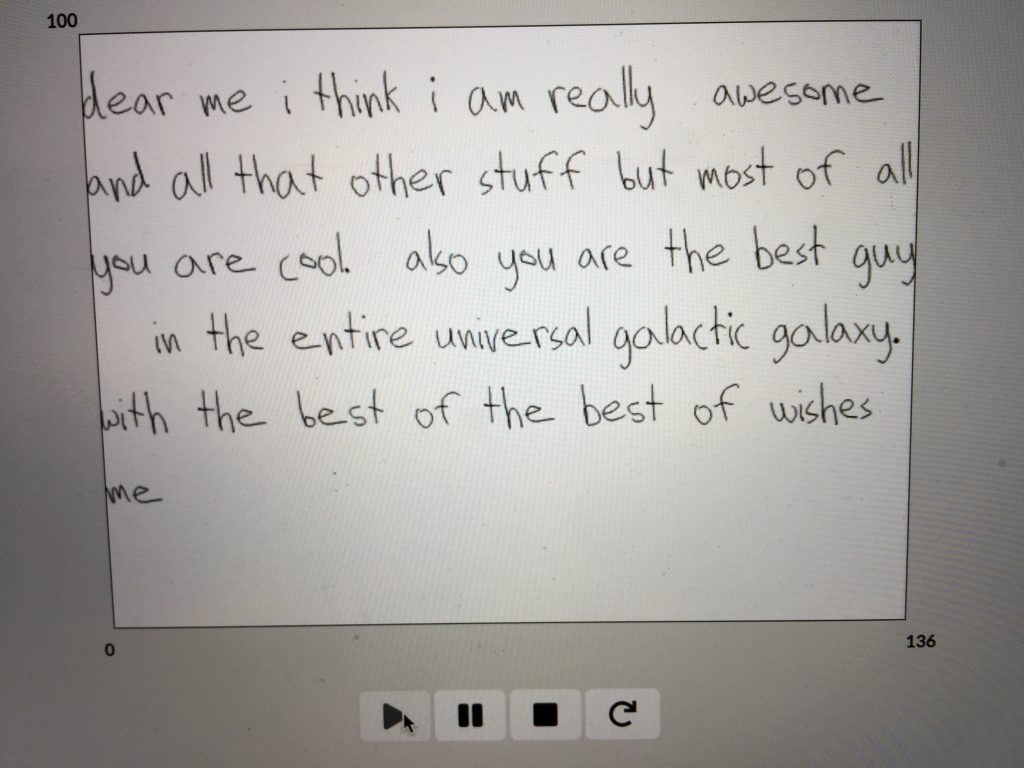 100
dear me i think i am really awesome
and all that other stuff but most of all
you are cool. also you are the best guy
in the entire universal galactic galaxy.
with the best of the best of wishes
me
0
136